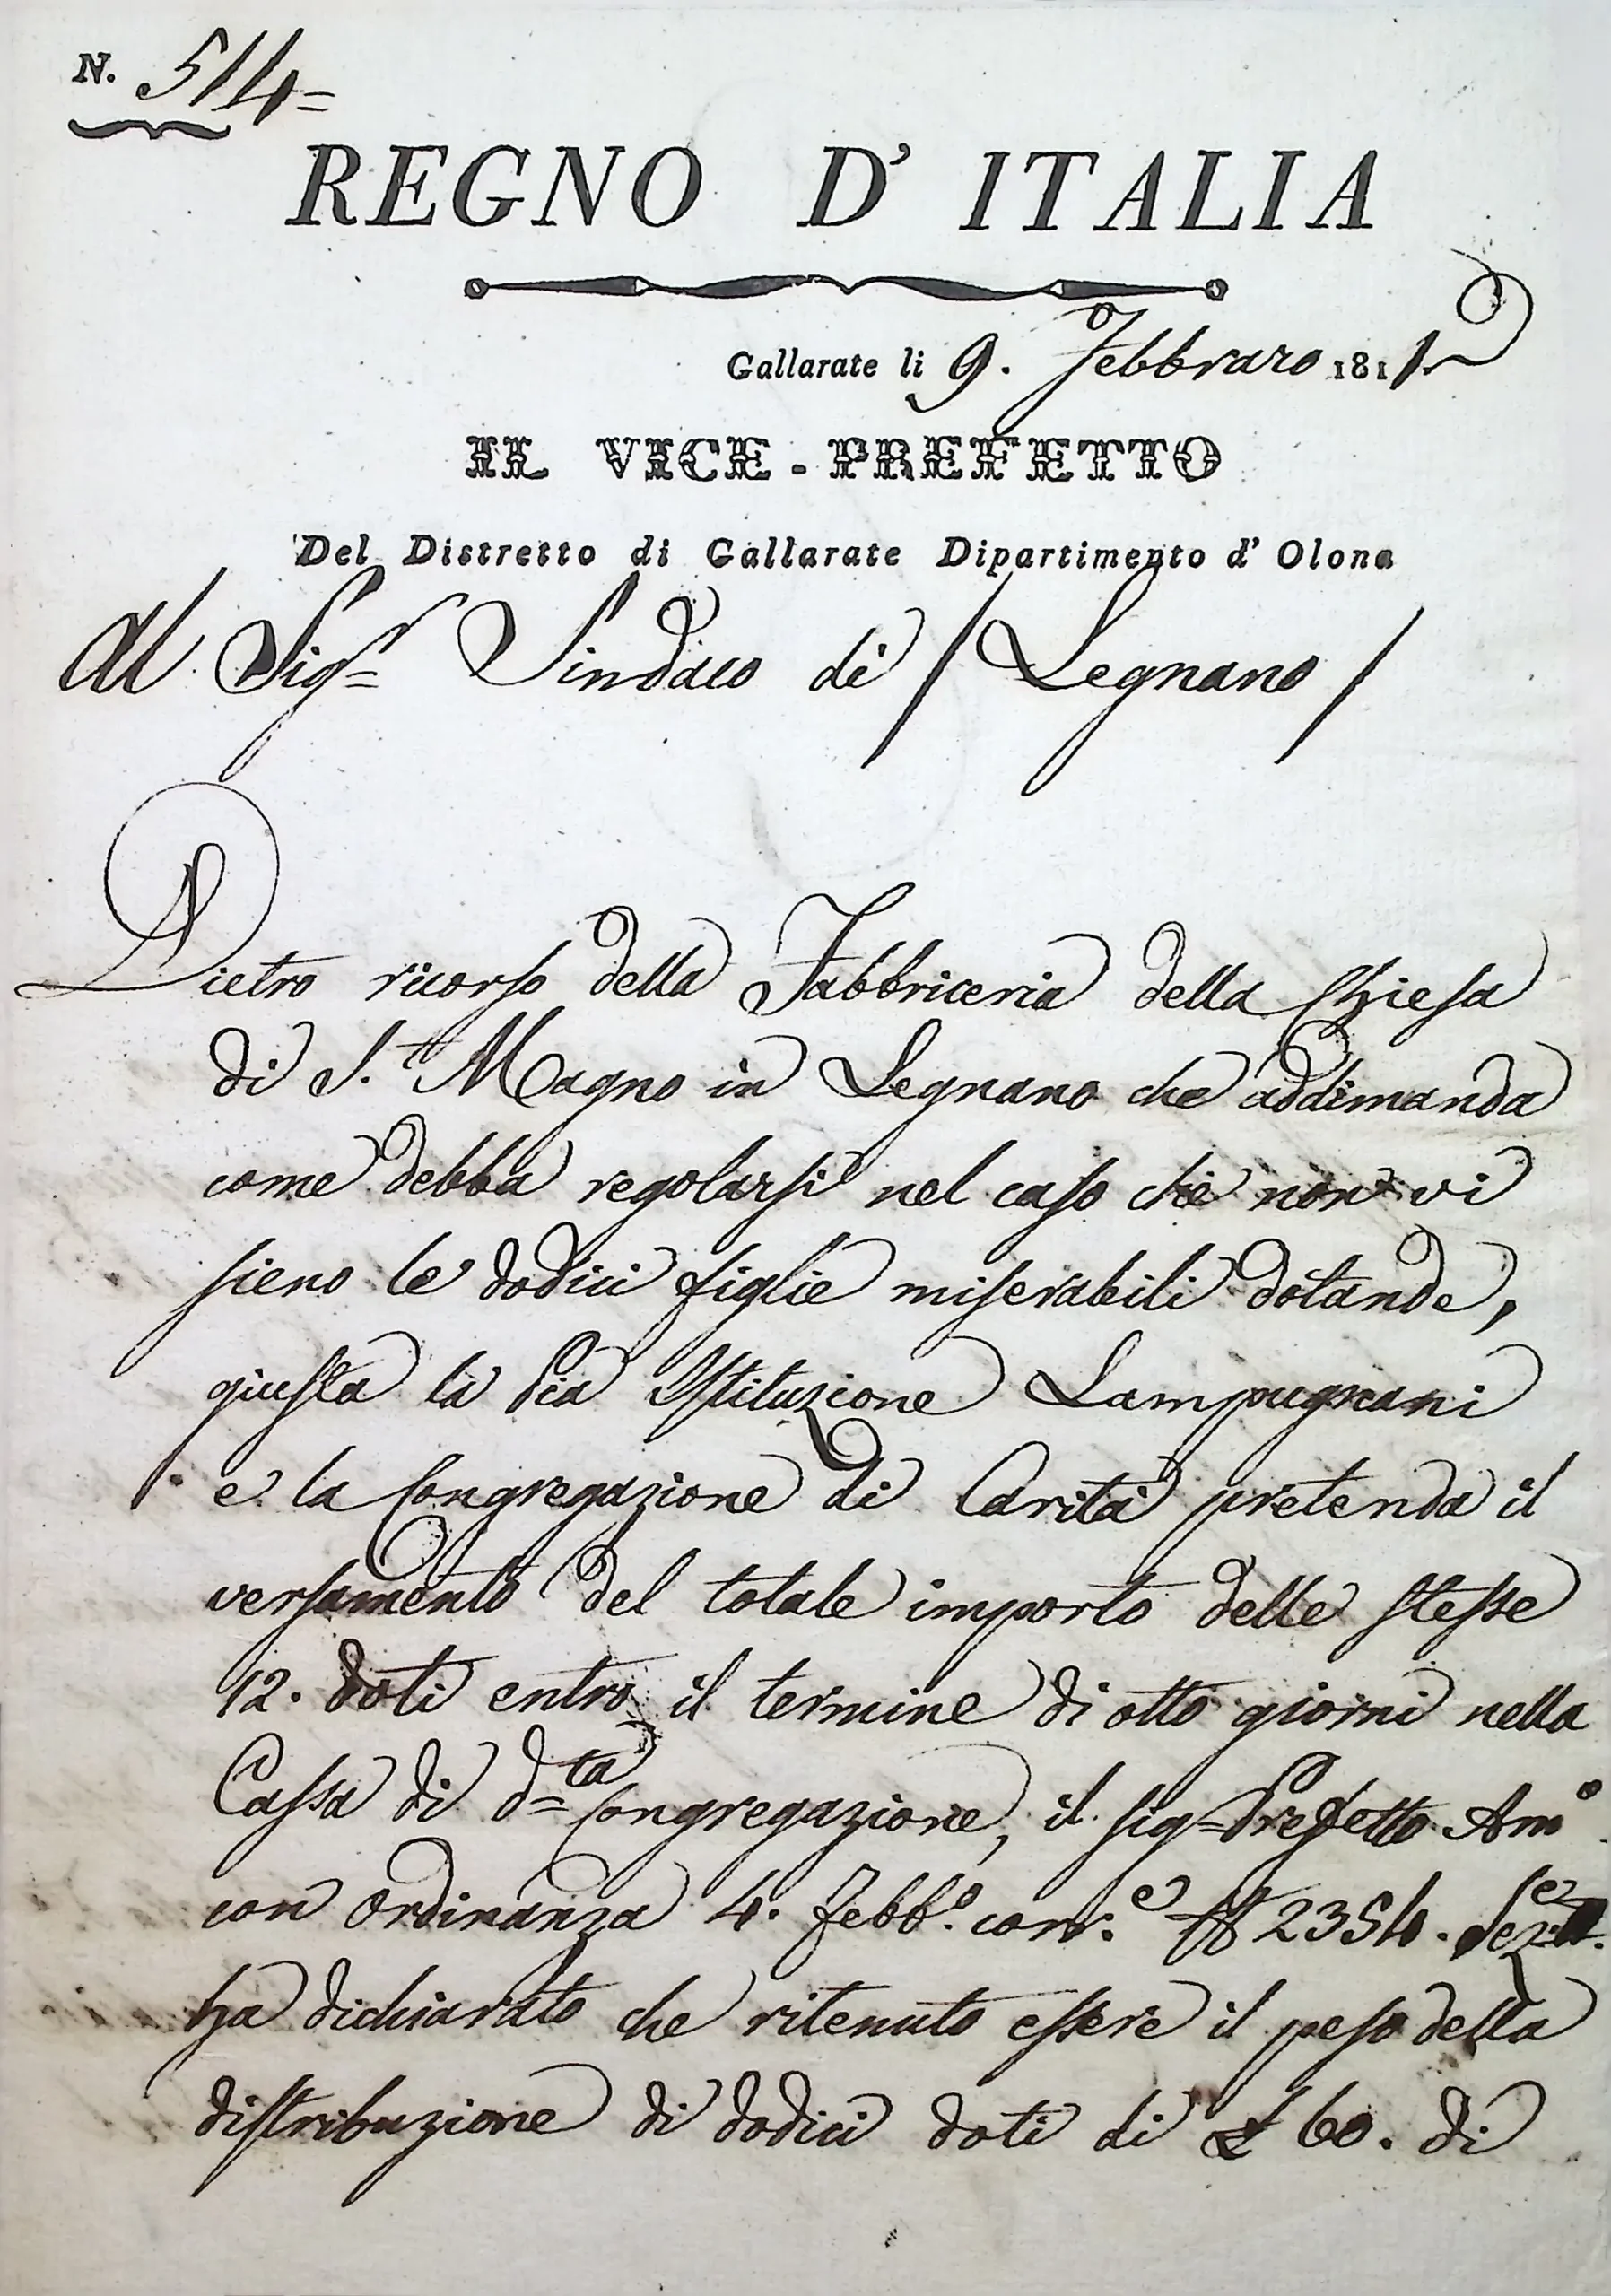 N. 514=
REGNO D' ITALIA
Gallarate li 9. Febbraro 1811
IL VICE-PREFETTO
Del Distretto di Gallarate Dipartimento d' Olona
Al Sig.r Sindaco di / Legnano /
Dietro ricorso della Fabbriceria della Chiesa
di S.t Magno in Legnano che addimanda
come debba regolarsi nel caso che non vi
sieno le dodici figlie miserabili dotande,
giusta la Pia Istituzione Lampugnani
e la Congregazione di Carità pretenda il
versamento del totale importo delle stesse
12. doti entro il termine di otto giorni nella
Cassa di d=ta Congregazione, il sig= Prefetto Am.o
con ordinanza 4. Febb.o corr.e N 2354. Sez.e
ha dichiarato che ritenuto essere il peso della
distribuzione di dodici doti di £ 60. di